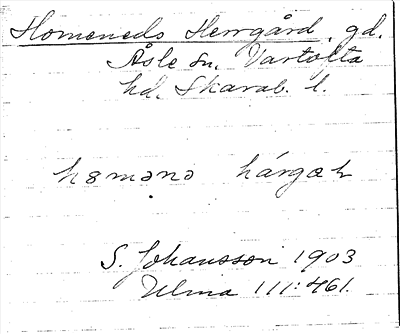 Homeneds Herrgård, gd.
Åsle sn. Vartofta
hd. Skarab. l.
hɞmənə hárgæɽ
S. Johansson 1903
Ulma 111:461.